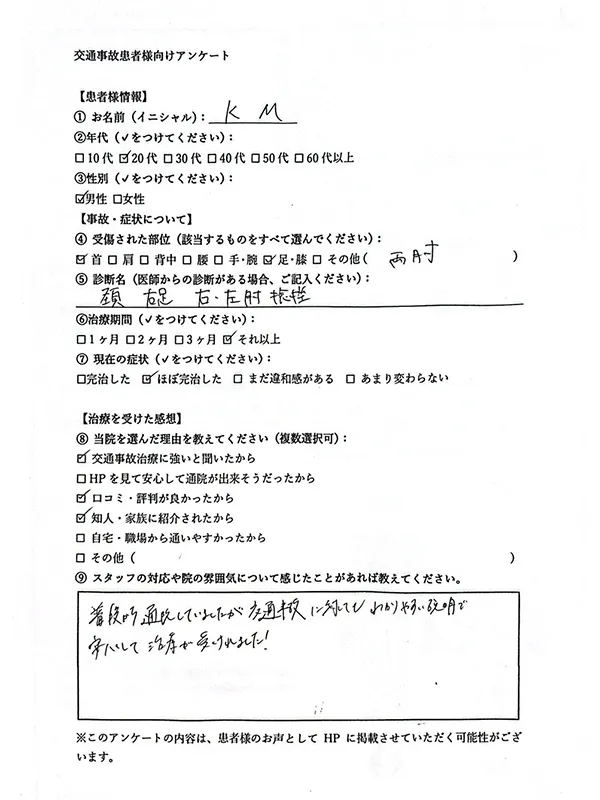 交通事故患者様向けアンケート
【患者様情報】
① お名前（イニシャル）： K M
②年代（✓をつけてください）：
□10代 ☑20代 □30代 □40代 □50代 □60代以上
③性別（✓をつけてください）：
☑男性 □女性
【事故・症状について】
④ 受傷された部位（該当するものをすべて選んでください）：
☑ 首 □ 肩 □ 背中 □ 腰 □ 手・腕 ☑ 足・膝 □ その他（ 両肘 ）
⑤ 診断名（医師からの診断がある場合、ご記入ください）：
頚 右足 右・左肘 捻挫
⑥治療期間（✓をつけてください）：
□1ヶ月 □2ヶ月 □3ヶ月 ☑ それ以上
⑦ 現在の症状（✓をつけてください）：
□完治した ☑ ほぼ完治した □ まだ違和感がある □ あまり変わらない
【治療を受けた感想】
⑧ 当院を選んだ理由を教えてください（複数選択可）：
☑ 交通事故治療に強いと聞いたから
□HPを見て安心して通院が出来そうだったから
☑ 口コミ・評判が良かったから
☑ 知人・家族に紹介されたから
□ 自宅・職場から通いやすかったから
□ その他（ ）
⑨ スタッフの対応や院の雰囲気について感じたことがあれば教えてください。
普段から通院していましたが 交通事故に対しても わかりやすい説明で
安心して 治療が受けれました！
※このアンケートの内容は、患者様のお声として HP に掲載させていただく可能性がござ
います。